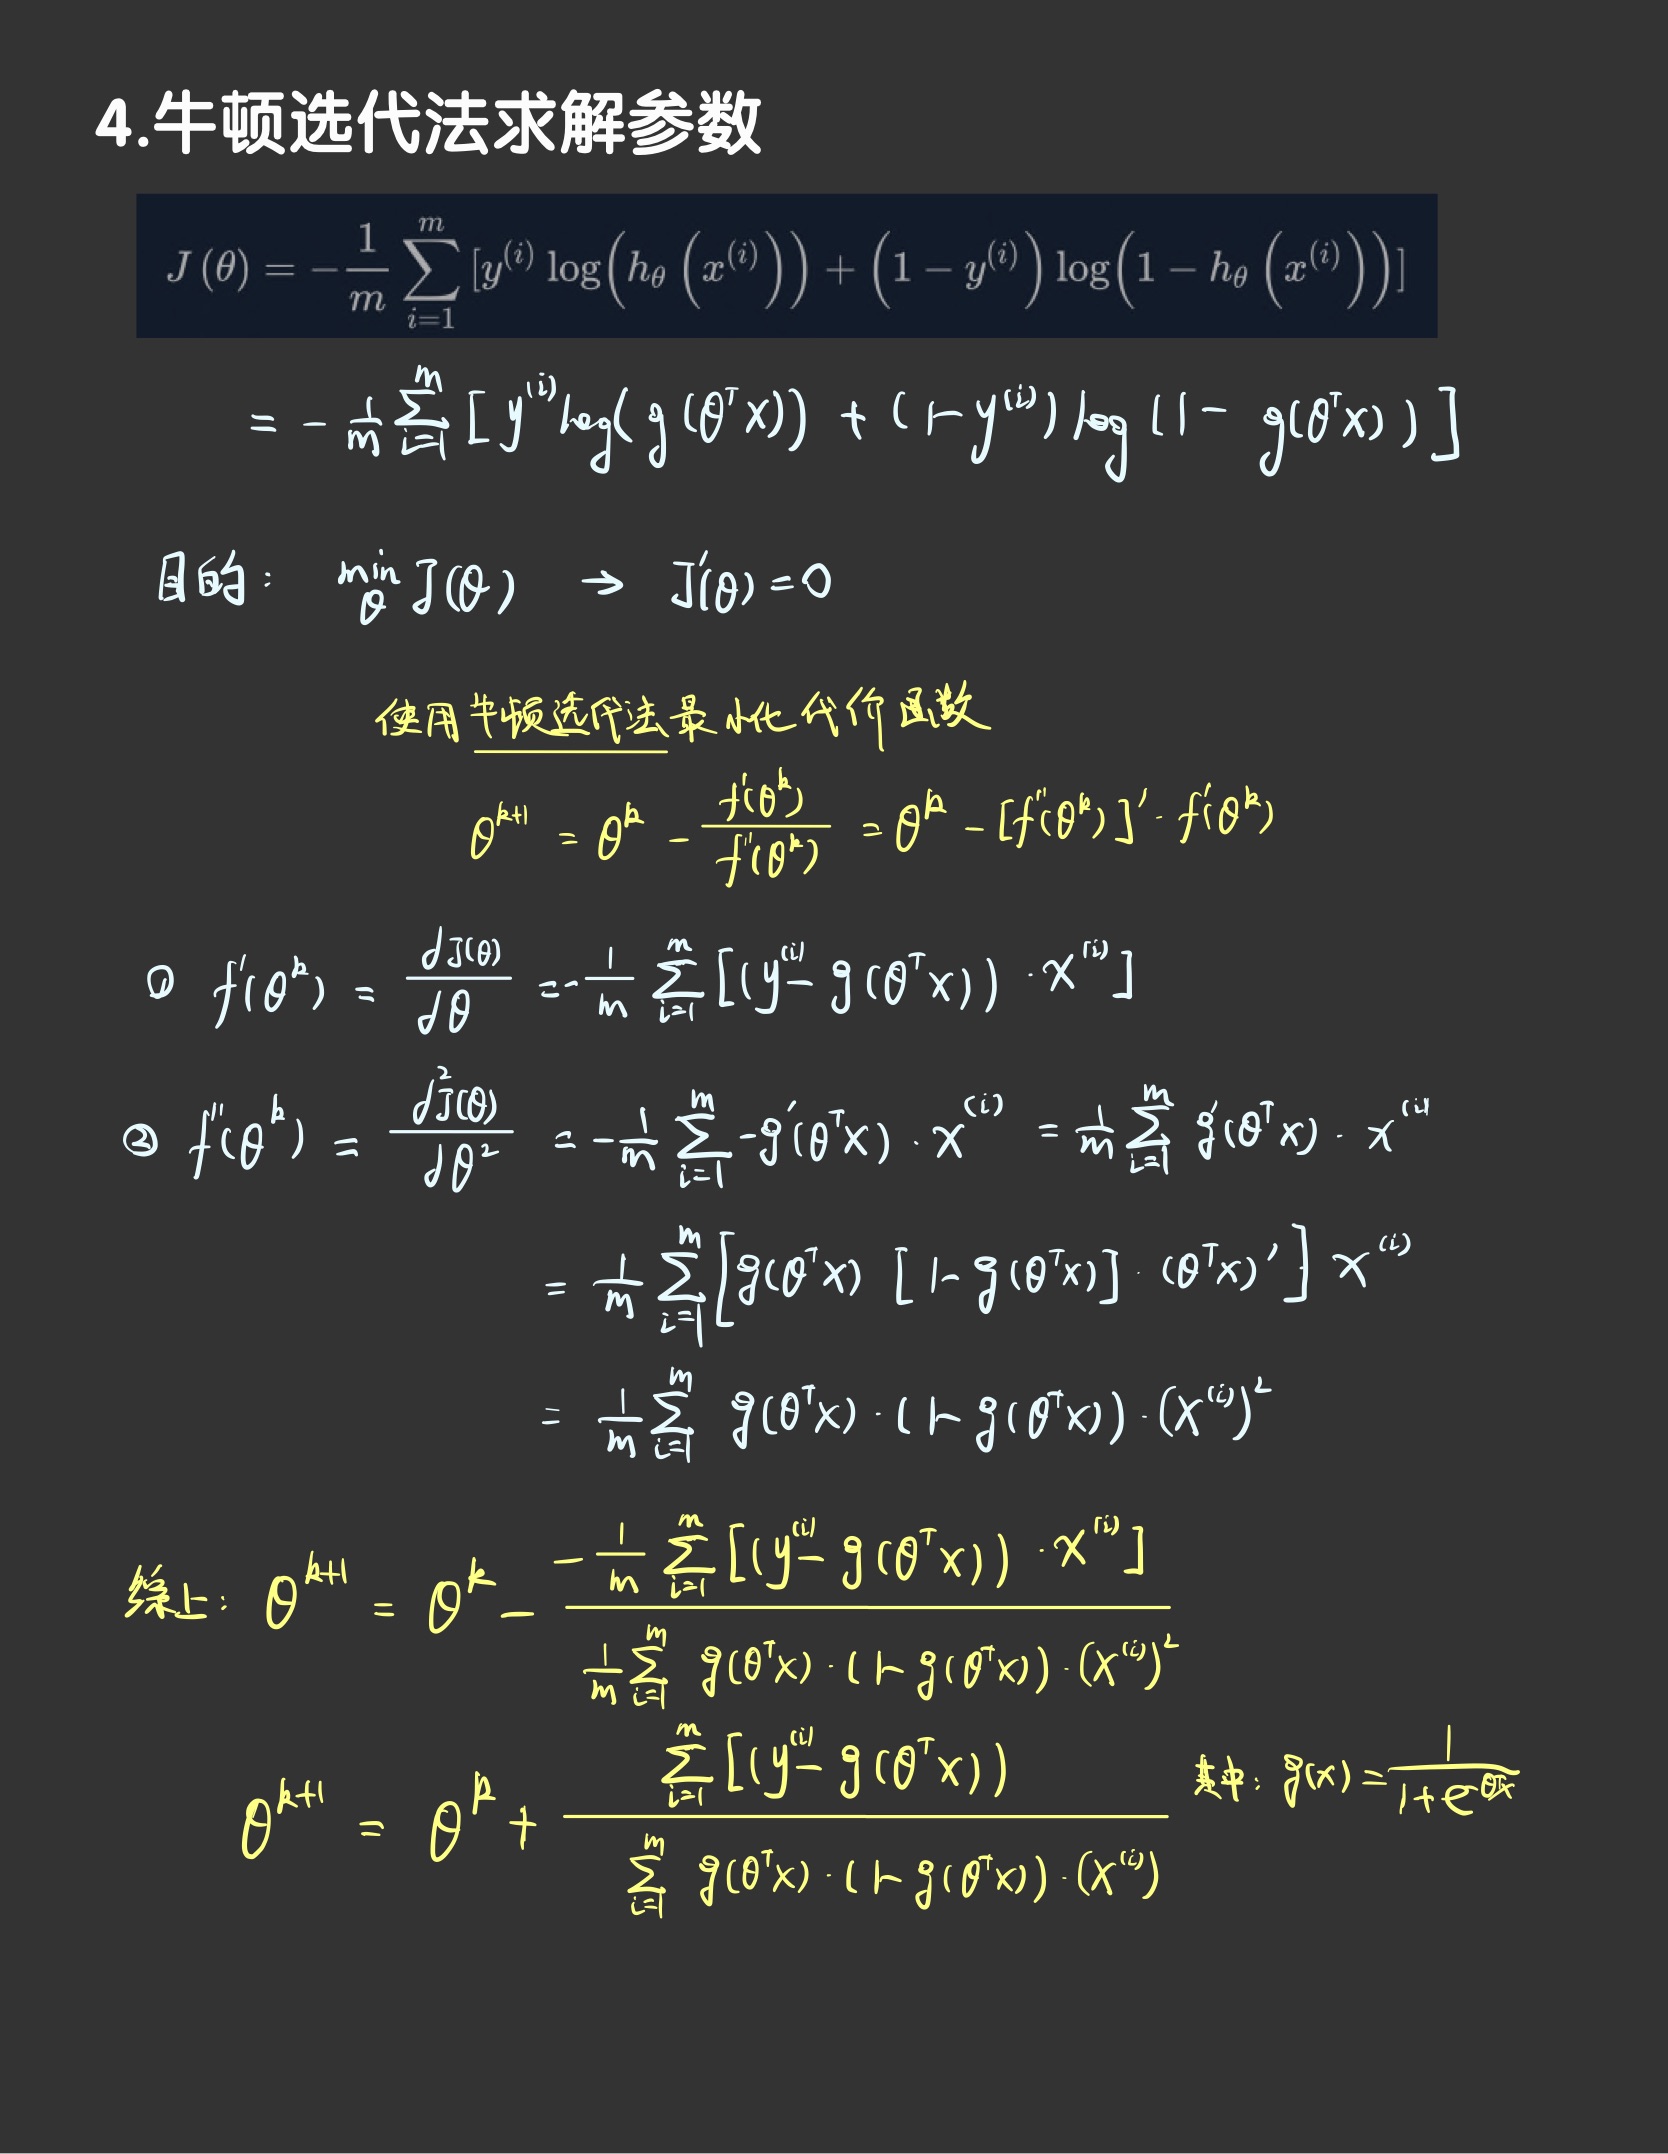 4.牛顿选代法求解参数
J(θ) = -1/m ∑_{i=1}^{m} [y^{(i)} log(h_θ(x^{(i)})) + (1 - y^{(i)}) log(1 - h_θ(x^{(i)}))]
= -1/m ∑_{i=1}^{m} [y^{(i)} log(g(θ^T x)) + (1-y^{(i)}) log(1 - g(θ^T x))]
目的: min_θ J(θ) → J'(θ)=0
使用牛顿选代法最小化代价函数
θ^{k+1} = θ^k - f'(θ^k)/f''(θ^k) = θ^k - [f''(θ^k)]' · f'(θ^k)
① f'(θ^k) = dJ(θ)/dθ = -1/m ∑_{i=1}^{m} [(y^{(i)} - g(θ^T x)) · x^{(i)}]
② f''(θ^k) = d²J(θ)/dθ² = -1/m ∑_{i=1}^{m} -g'(θ^T x) · x^{(i)} = 1/m ∑_{i=1}^{m} g'(θ^T x) · x^{(i)}
= 1/m ∑_{i=1}^{m} [g(θ^T x) [1-g(θ^T x)] · (θ^T x)'] x^{(i)}
= 1/m ∑_{i=1}^{m} g(θ^T x) · (1-g(θ^T x)) · (x^{(i)})²
综上: θ^{k+1} = θ^k - (-1/m ∑_{i=1}^{m} [(y^{(i)} - g(θ^T x)) · x^{(i)}]) / (1/m ∑_{i=1}^{m} g(θ^T x) · (1-g(θ^T x)) · (x^{(i)})²)
θ^{k+1} = θ^k + (∑_{i=1}^{m} [(y^{(i)} - g(θ^T x))) / (∑_{i=1}^{m} g(θ^T x) · (1-g(θ^T x)) · (x^{(i)})) 其中: g(x) = 1/(1+e^{-θ^T x})